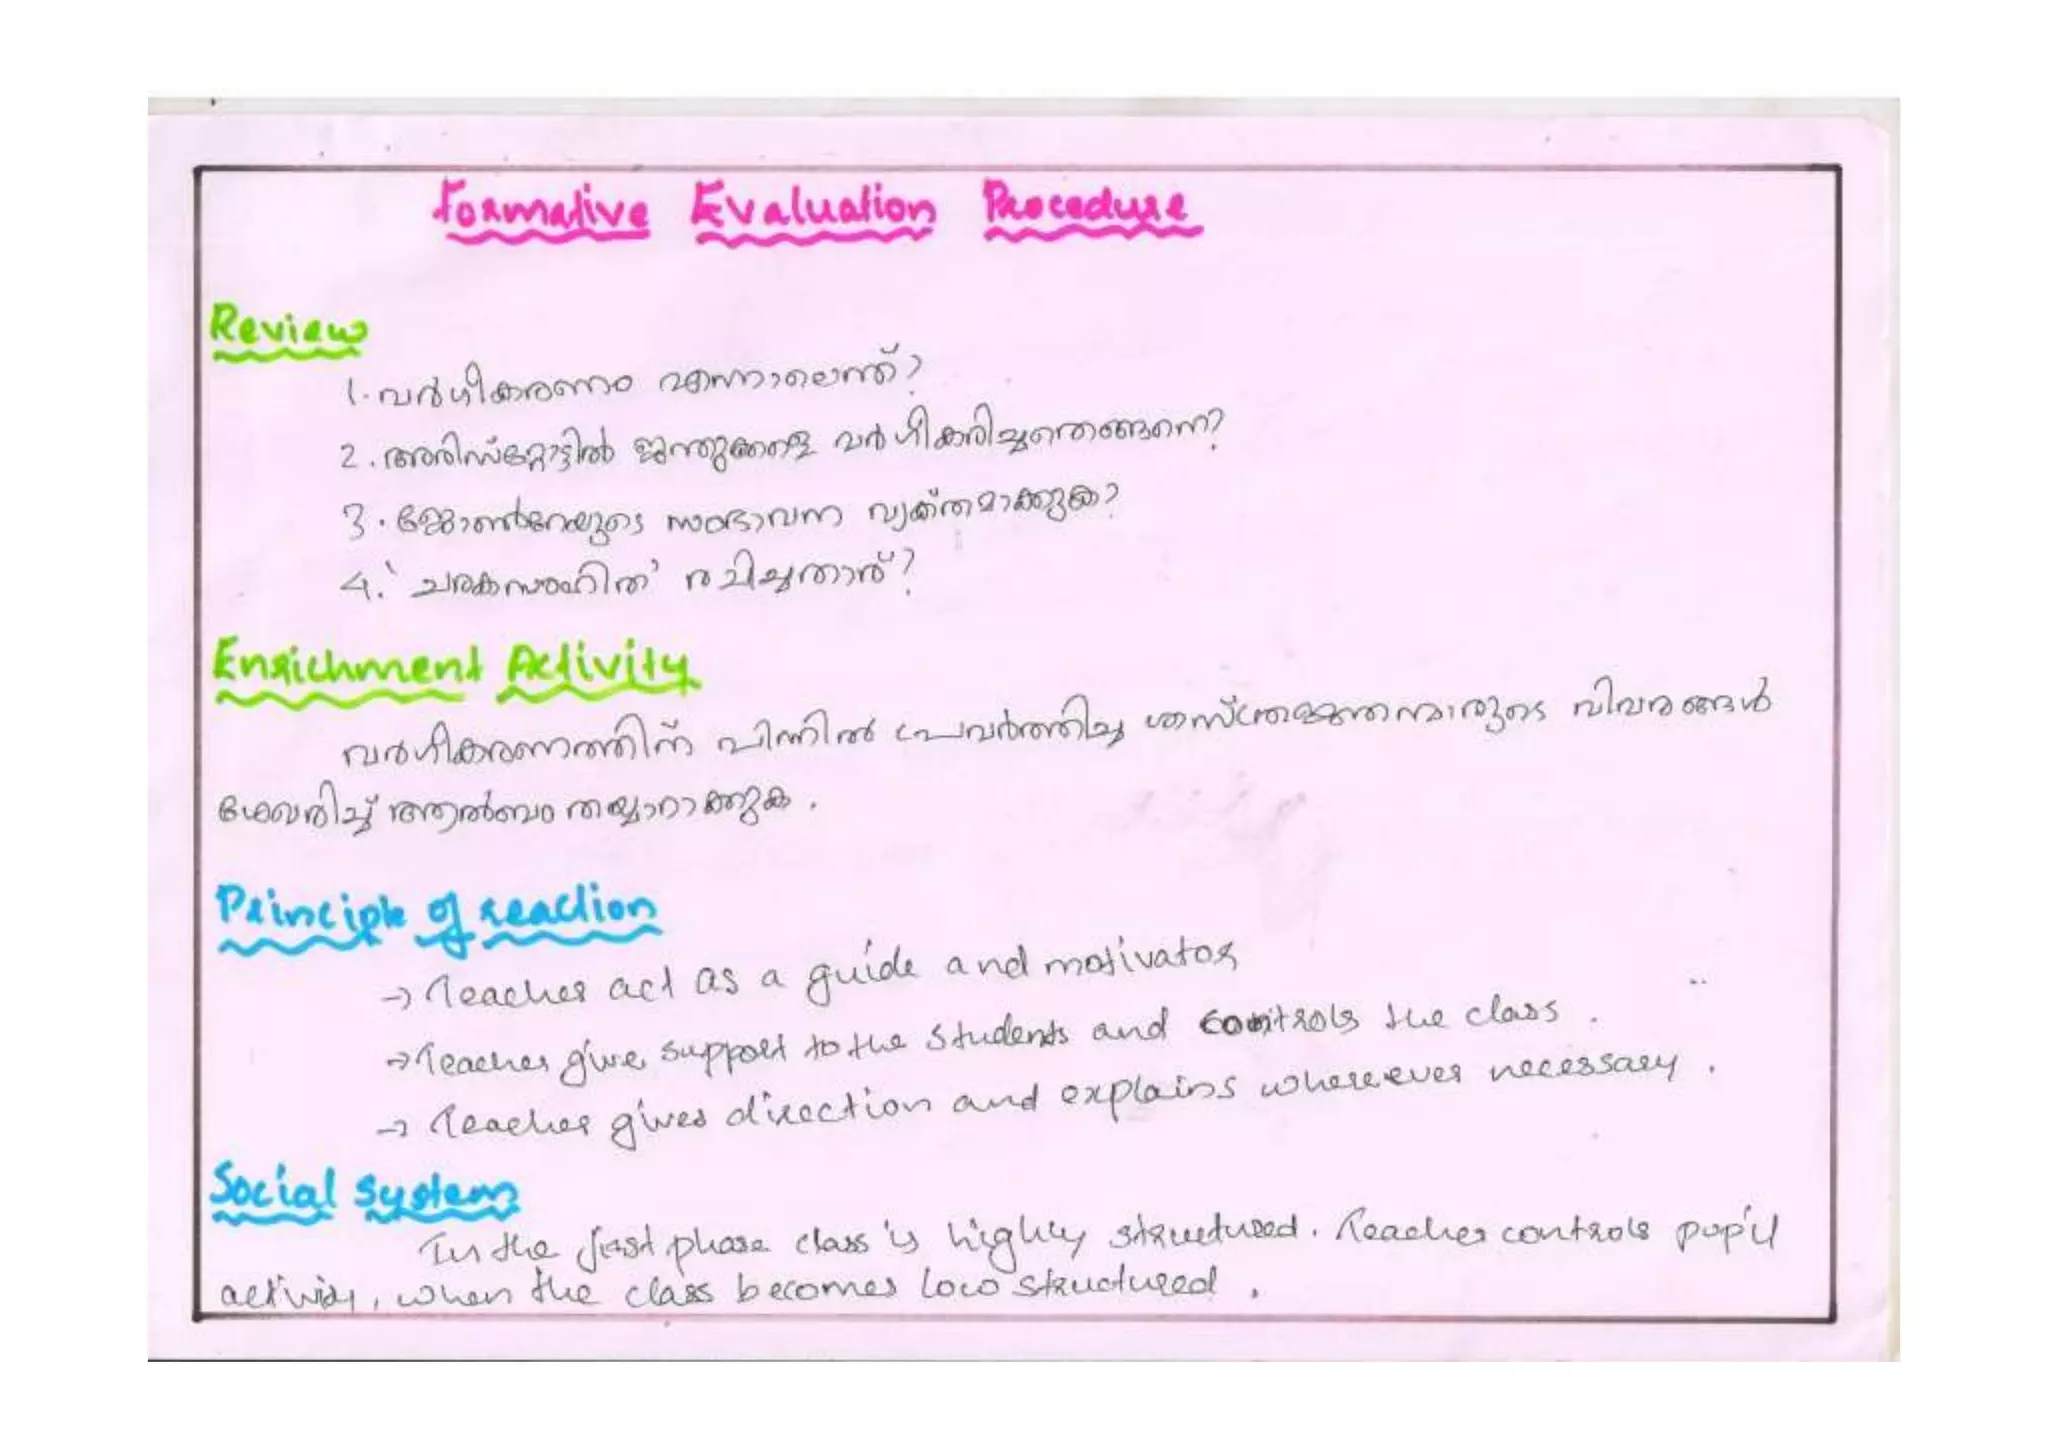 Formative Evaluation Procedure
Review
1. വർഗീകരണം എന്നാലെന്ത്?
2. അരിസ്റ്റോട്ടിൽ ജന്തുക്കളെ വർഗീകരിച്ചതെങ്ങനെ?
3. ജോൺറേയുടെ സംഭാവന വ്യക്തമാക്കുക?
4. 'ചരകസംഹിത' രചിച്ചതാര്?
Enrichment Activity
വർഗീകരണത്തിന് പിന്നിൽ പ്രവർത്തിച്ച ശാസ്ത്രജ്ഞന്മാരുടെ വിവരങ്ങൾ
ശേഖരിച്ച് ആൽബം തയ്യാറാക്കുക.
Principle of reaction
→ Teacher act as a guide and motivator
→ Teacher give support to the students and controls the class.
→ Teacher gives direction and explains whereever necessary.
Social system
In the first phase class is highly structured. Teacher controls pupil
activity, when the class becomes low structured.